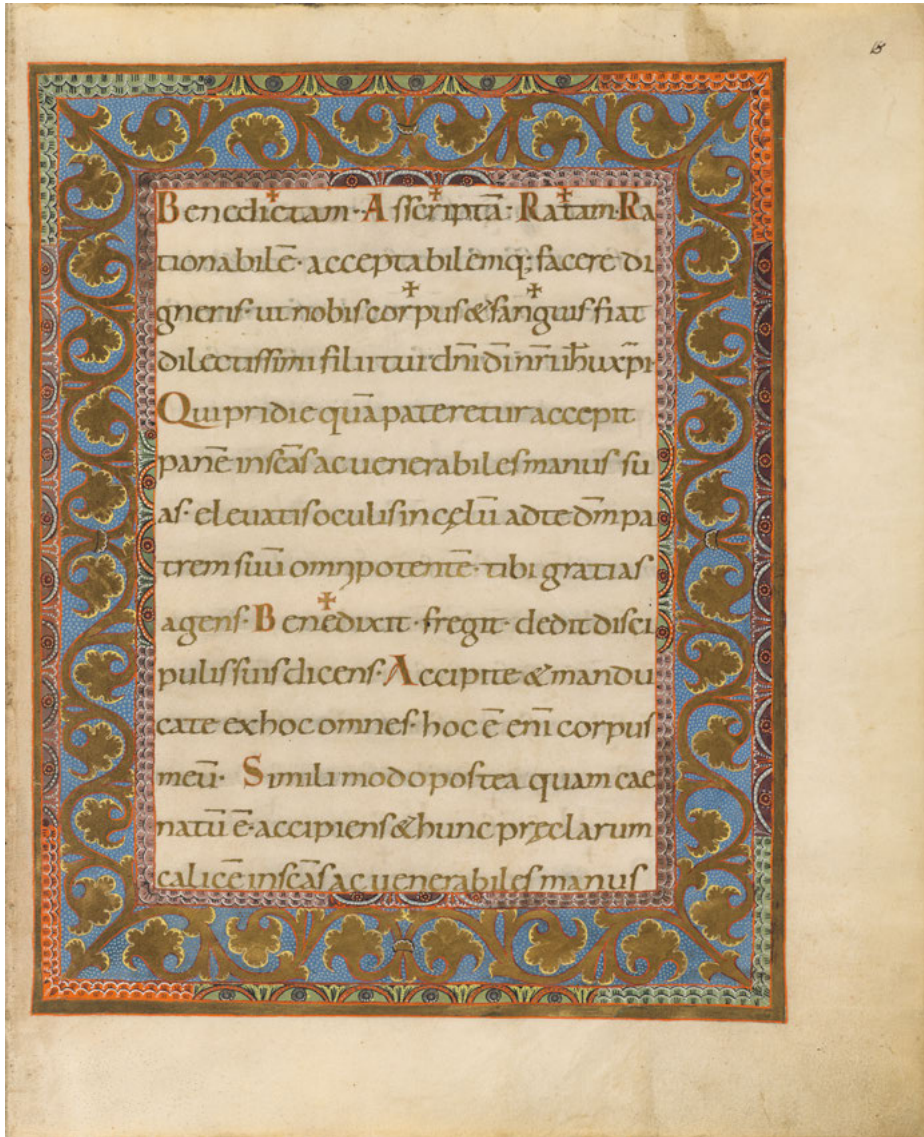 15
Benedictam· Asscriptā· Ratam· Ra
tionabilē· acceptabilēmq; facere di
gneris· ut nobis corpus & sanguis fiat
dilectissimi filii tui dn̄i dī nr̄i ih̄u xp̄i·
Qui pridie quā pateretur accepit
panē in sc̄as ac uenerabiles manus su
as· eleuatis oculis in cęlū ad te dm̄ pa
trem suū omnipotentē· tibi gratias
agens· Benedixit· fregit· dedit disci
pulis suis dicens· Accipite & mandu
cate ex hoc omnes· hoc ē eni̅ corpus
meū· Simili modo postea quam cae
natū ē· accipiens & hunc pręclarum
calicē in sc̄as ac uenerabiles manus